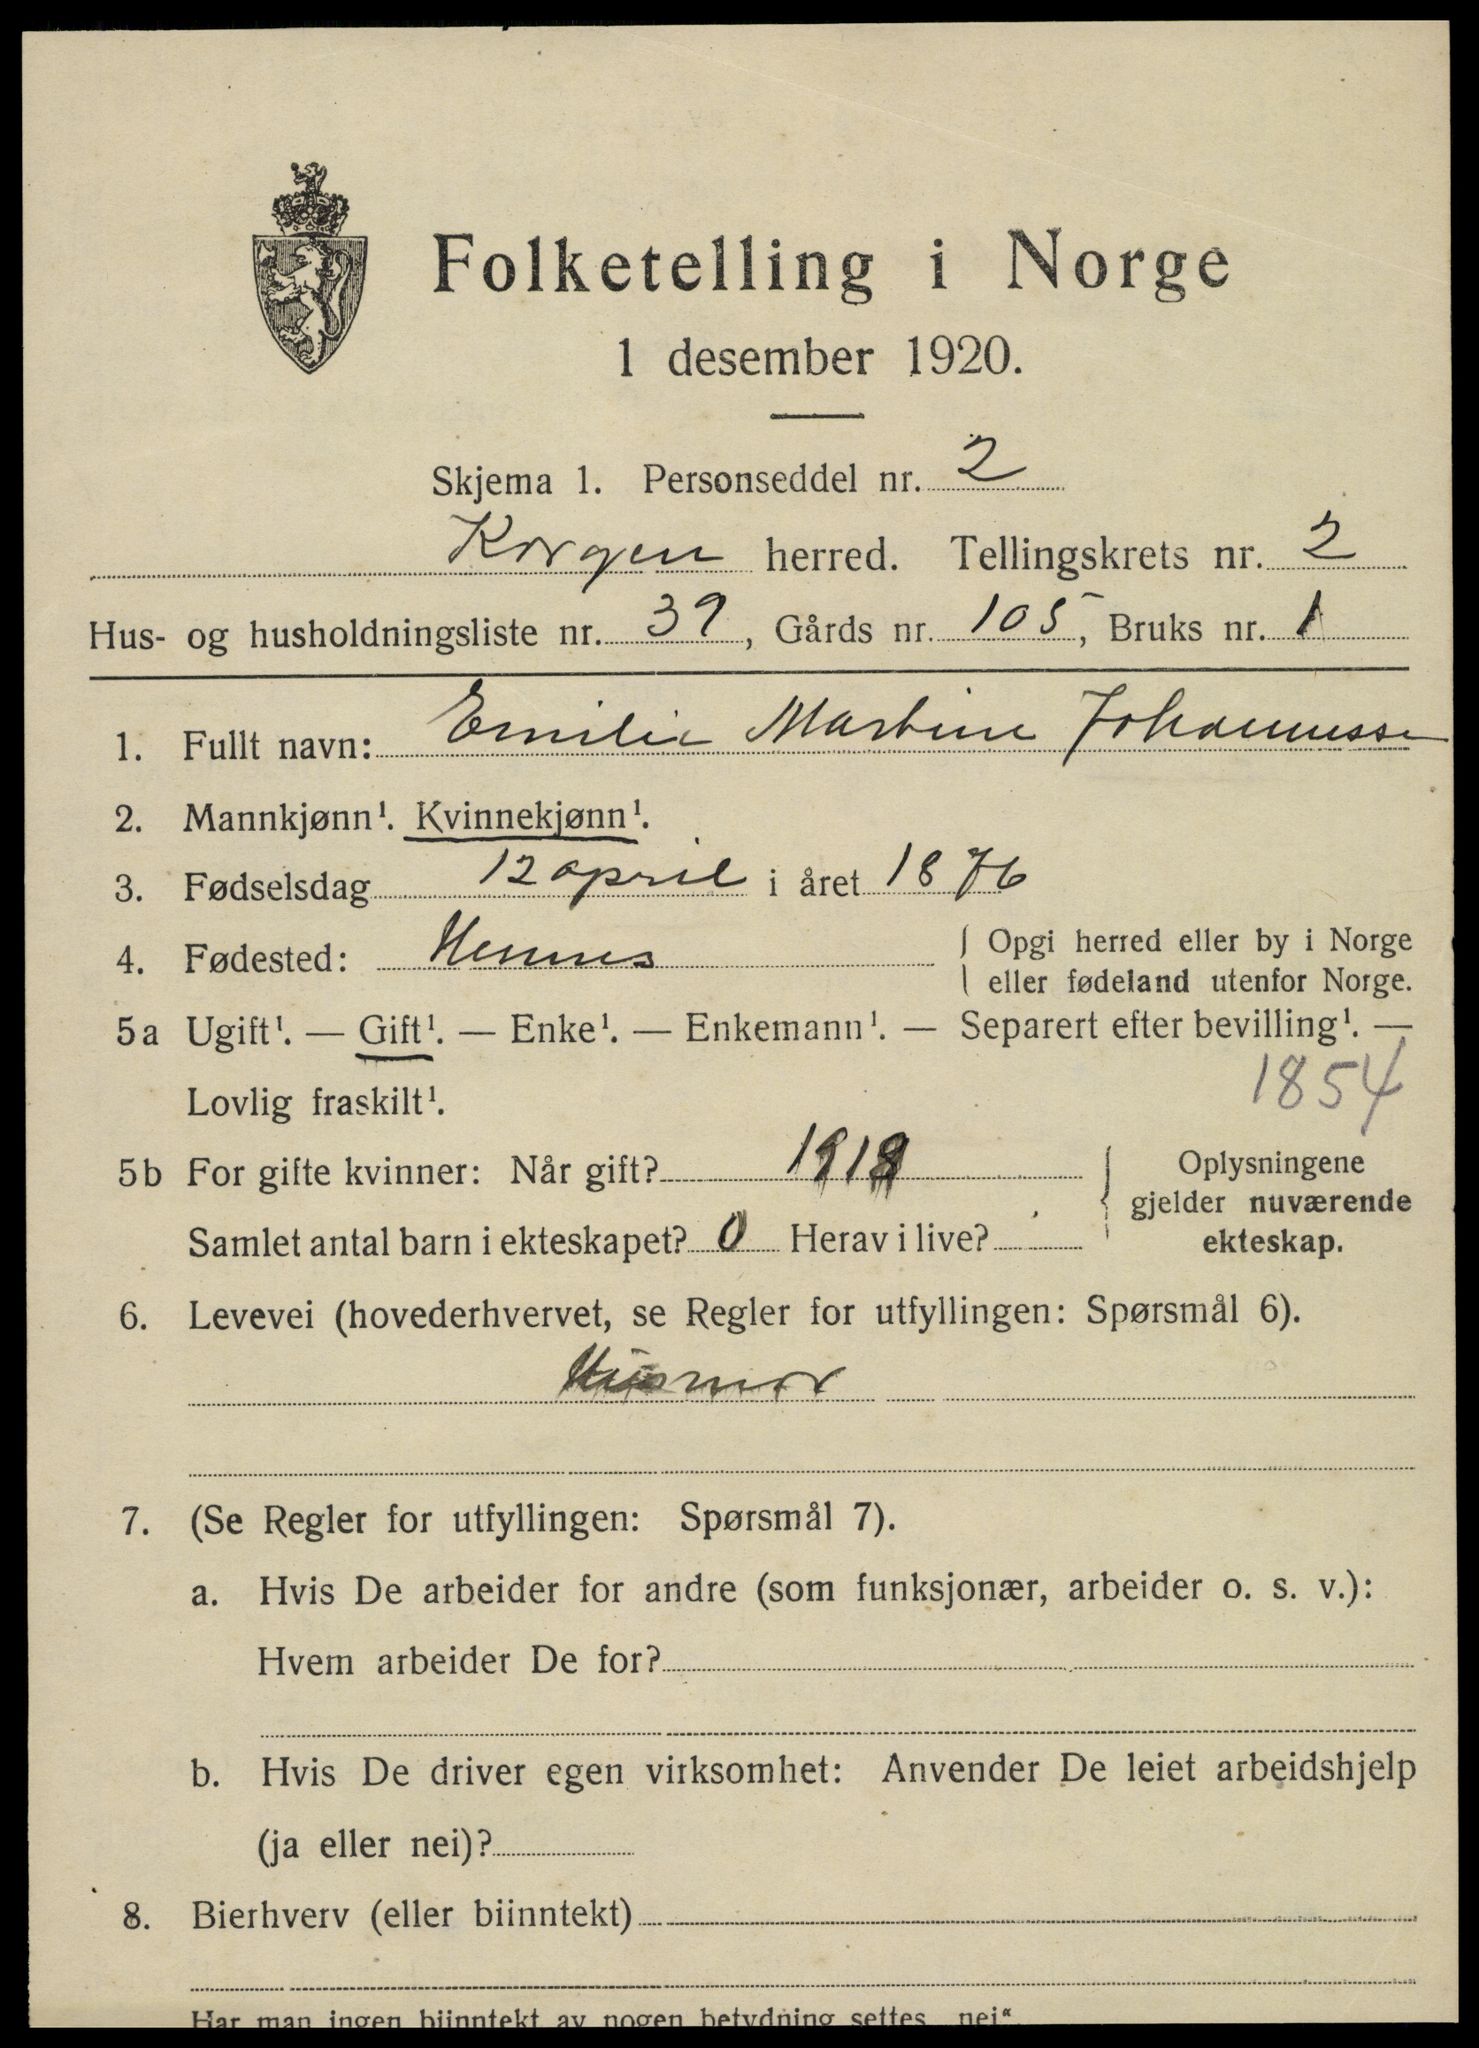 Folketelling i Norge
1 desember 1920.
Skjema 1. Personseddel nr. 2
Korgen herred. Tellingskrets nr. 2
Hus- og husholdningsliste nr. 39, Gårds nr. 105, Bruks nr. 1
1. Fullt navn: Emilie Martine Johannesse
2. Mannkjønn¹. Kvinnekjønn¹.
3. Fødselsdag 12 april i året 1876
4. Fødested: Hemnes { Opgi herred eller by i Norge
eller fødeland utenfor Norge.
5a Ugift¹. — Gift¹. — Enke¹. — Enkemann¹. — Separert efter bevilling¹. —
Lovlig fraskilt¹.
1854
5b For gifte kvinner: Når gift? { Oplysningene
gjelder nuværende
Samlet antal barn i ekteskapet? 0 Herav i live?
ekteskap.
6. Levevei (hovederhvervet, se Regler for utfyllingen: Spørsmål 6).
Husmor
7. (Se Regler for utfyllingen: Spørsmål 7).
a. Hvis De arbeider for andre (som funksjonær, arbeider o. s. v.):
Hvem arbeider De for?
b. Hvis De driver egen virksomhet: Anvender De leiet arbeidshjelp
(ja eller nei)?
8. Bierhverv (eller biinntekt)
Har man ingen biinntekt av nogen betydning settes „nei“